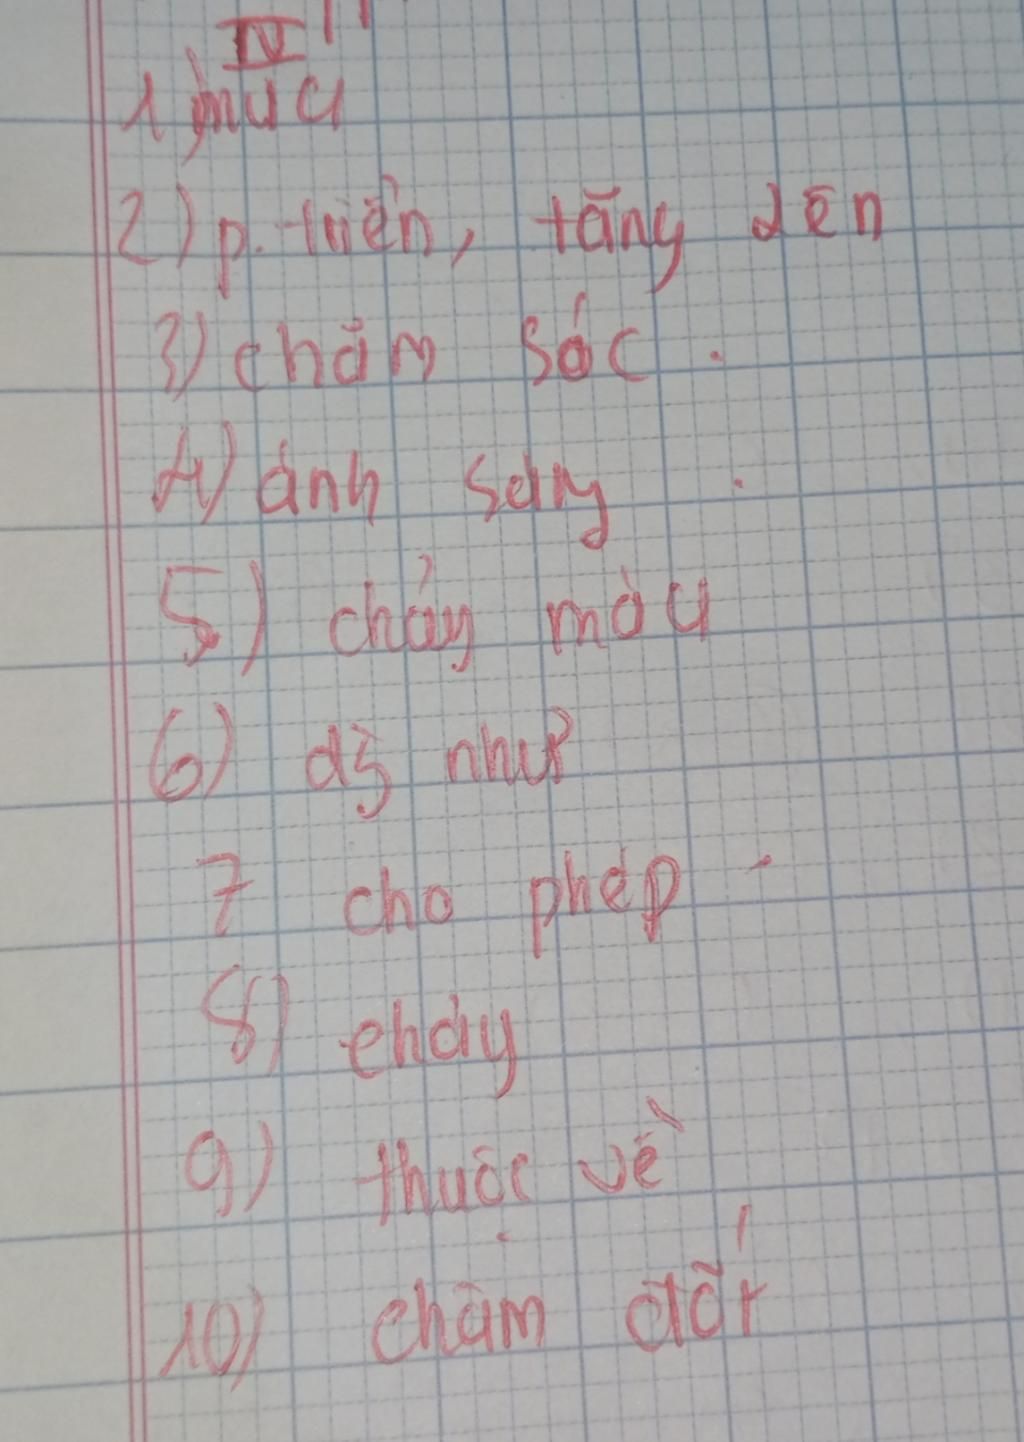 IV
1) mua
2) p. triển, tăng lên
3) chăm sóc.
4) ánh sáng.
5) chảy máu
6)
7 cho phép
8) cháy
9) thuộc về
10) chấm dứt